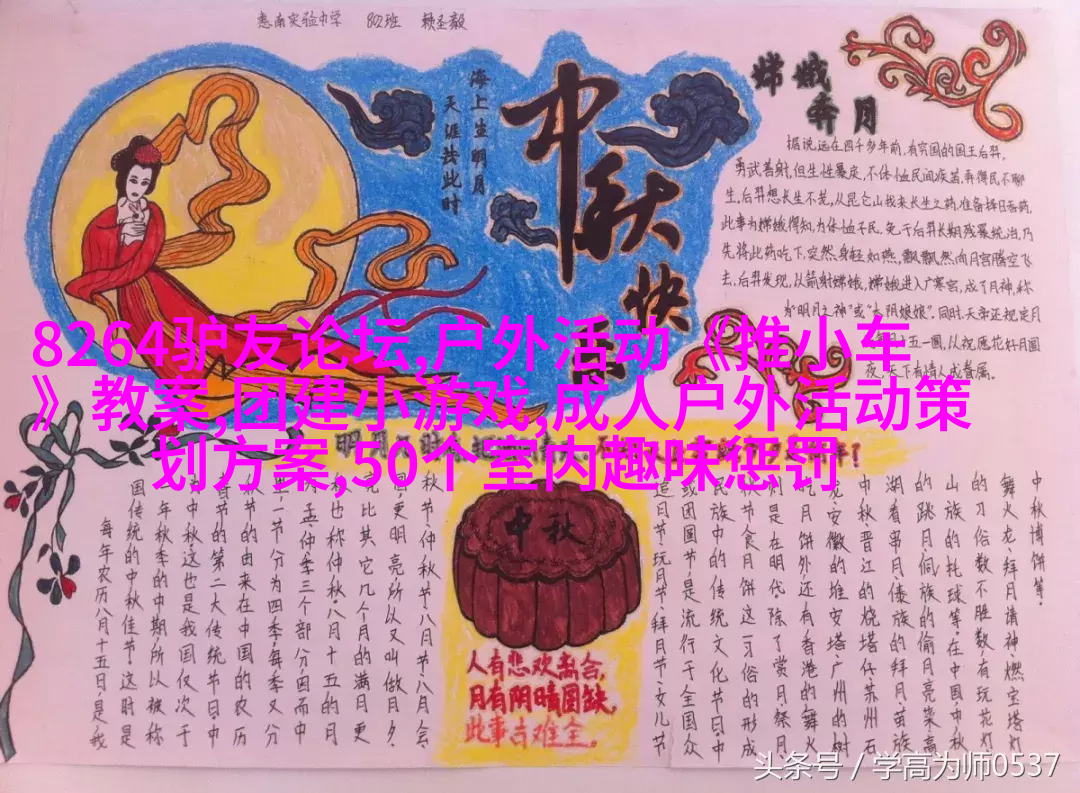 惠南实验中学 802班 赖圣毅
海上生明月
天涯共此时
中秋快
嫦娥
奔月
据说,远在四千多年前,有穷国的国王后羿,
勇武善射,但生性暴戾,不体恤民间疾苦,弄得民不聊
生,后羿想长生不老,从昆仑山找来长生之药,准备择日吞药,
此事为嫦娥得知,为体恤平民,免于后羿长期残暴统治,乃
先将此药吃下,突然身轻如燕,飘飘然向月宫腾空飞
去,后羿发现,以箭射嫦娥,嫦娥进入广寒宫,成了月神,称
为“明月之神”或“太阴娘娘”。同时,天帝还规定月
下有情人成眷属。
8264驴友论坛,户外活动《推小车
》教案,团建小游戏,成人户外活动策
划方案,50个室内趣味惩罚
中秋
人有悲欢离合,
月有阴晴圆缺,
此事古难全。
每年农历八月十五日,是我
国传统的中秋佳节。这时是
年秋季的中期,所以被称
中秋,这也是我国仅次于
节的第二大传统节日,中
节的由来在中国的农历
一节分为四季,每季又分
孟、仲、季三个部分,因而中
也称仲秋,八月十五的月
比其它几个月的满月更
更明亮,所以又叫做月夕
秋节、仲秋节、八月节、八月会
追月节、玩月节、拜月节、女儿节
或团圆节,是流行于全国众
民族中的传统文化节日,中
秋节食月饼这一习俗的形成
则是在明代,除了赏月、祭月
吃月饼外,还有香港的舞火
龙、安徽的堆宝塔、广州的树
中秋、晋江的烧塔仔、苏州石
湖看串月、傣族的拜月、苗族
的跳月、侗族的偷月亮菜、高
山族的托球等,在中国,中秋
的习俗数不胜数,有玩花灯
舞火龙、拜月请神、燃宝塔灯
中秋博饼等。
头条号 / 学高为师0537